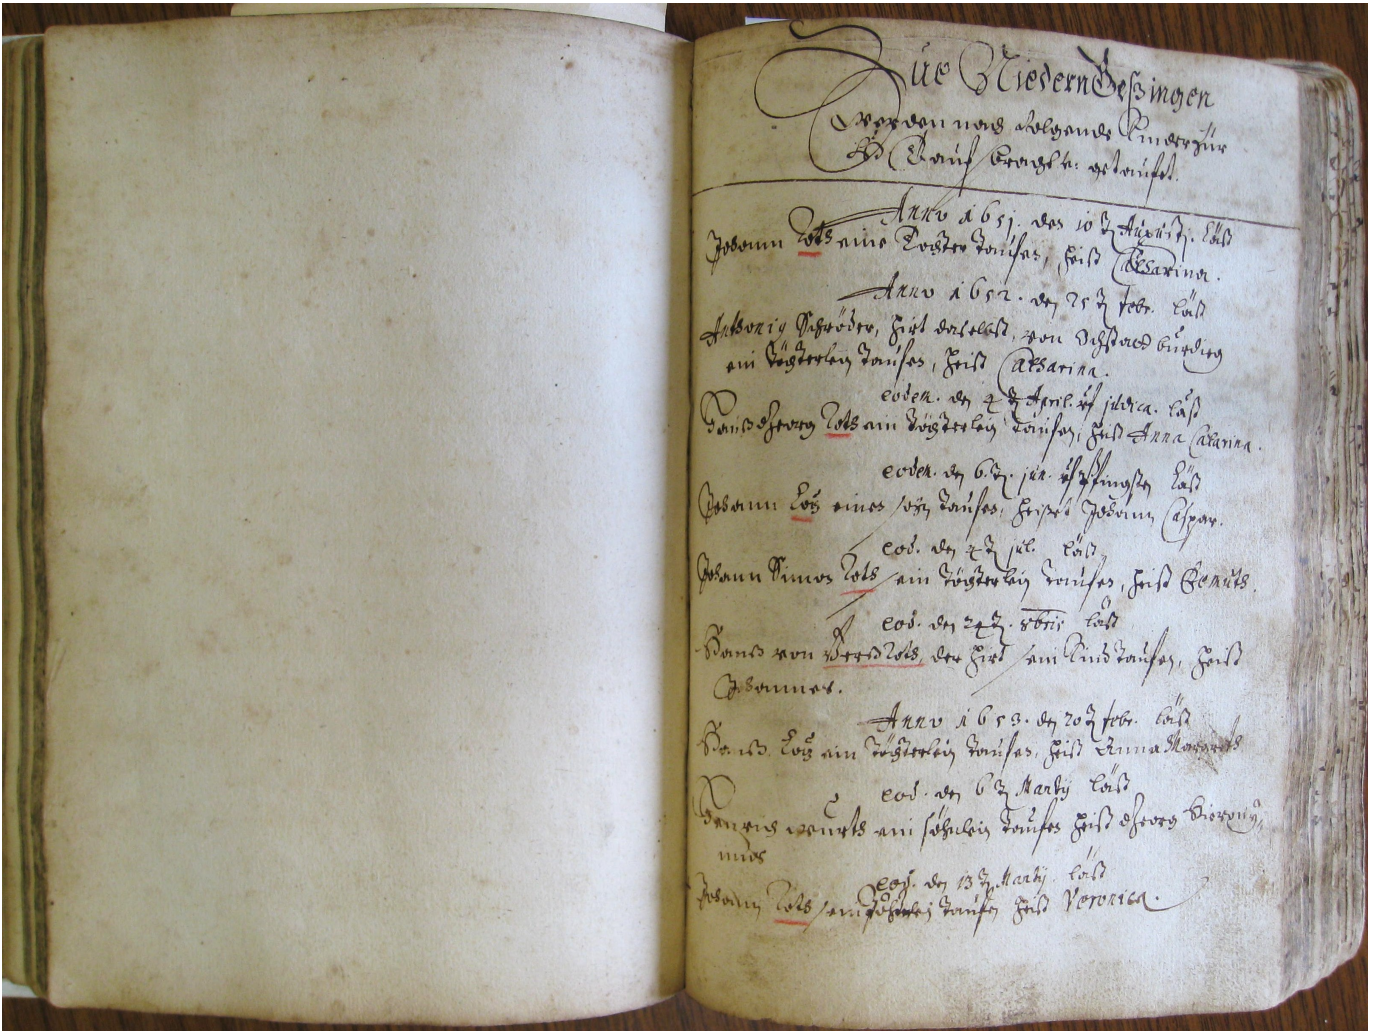 Zue NiedernGeßingen
werden nach folgende Kinder zur
H. Tauf bracht u: getauft.
Anno 1651. den 10 t. Augusti. läst
Johann Loth eine Tochter taufen, heist Catharina.
Anno 1652. den 25 t. febr. läst
Anthonig Schröder, hirt daselbst, von
ein töchterlein taufen, heist Catharina.
eodem. den 4 t. April. uf judica. läst
Hanß Georg Loth ein töchterlein taufen, heist Anna Catarina.
eodem. den 6. t. jun. uf Pfingsten läst
Johann Lotz einen sohn taufen, heißet Johann Caspar.
eod. den 4 t. jul. läst
Johann Simon Loth sein töchterlein taufen, heist
eod. den 24 t. 8bris läst
Hanß von der hirt sein Kind taufen, heist
Johannes.
Anno 1653. den 20 t. febr. läst
Hanß Lotz ein töchterlein taufen, heist Anna Margreth
eod. den 6 t. Martij läst
Henrich wurth ein söhnlein taufen heist Georg Hierony-
mus
eod. den 13 t. Martij. läst
Johann Loth sein töchterlein taufen heist Veronica.